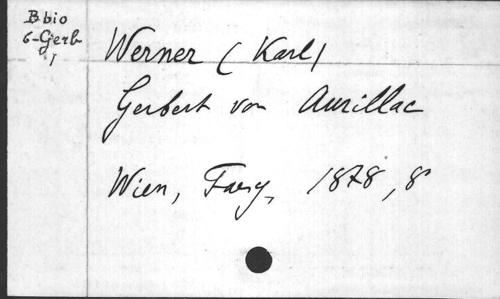 B bio
6-Gerb
1
Werner (Karl)
Gerbert von Aurillac
Wien, Faesy, 1878, 8°